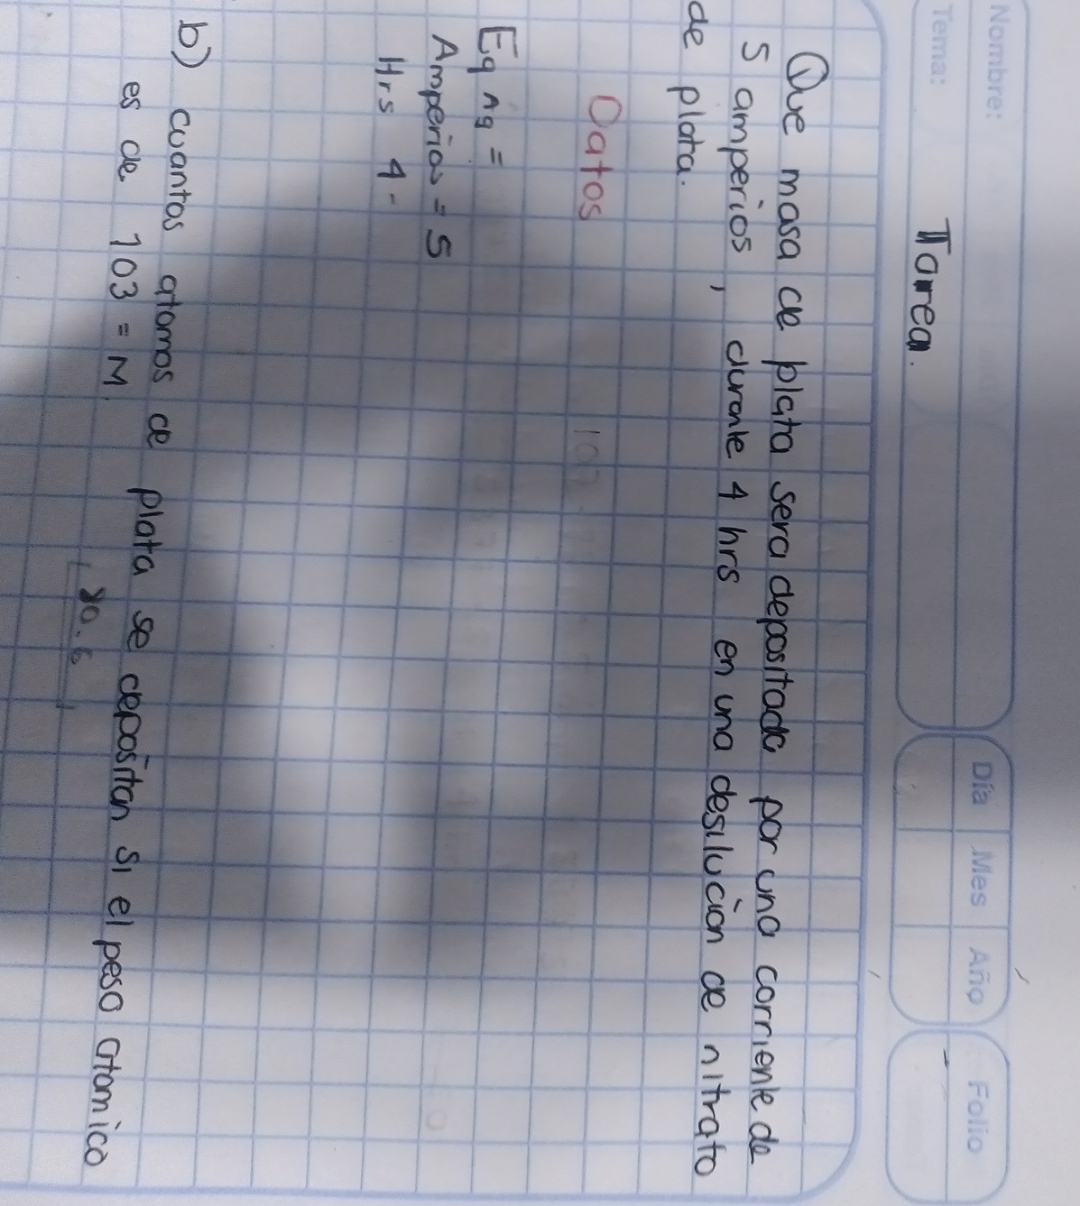 Nombre:
Tema:
Día Mes Año Folio
Tarea.
Que masa de plata sera depositada por una corriente de
5 amperios, durante 4 hrs en una desilución de nitrato
de plata.
Datos
Eq Ag =
Amperios = 5
Hrs 4.
b) cuantos atomos de plata se depositan si el peso atomico
es de 103 = M.